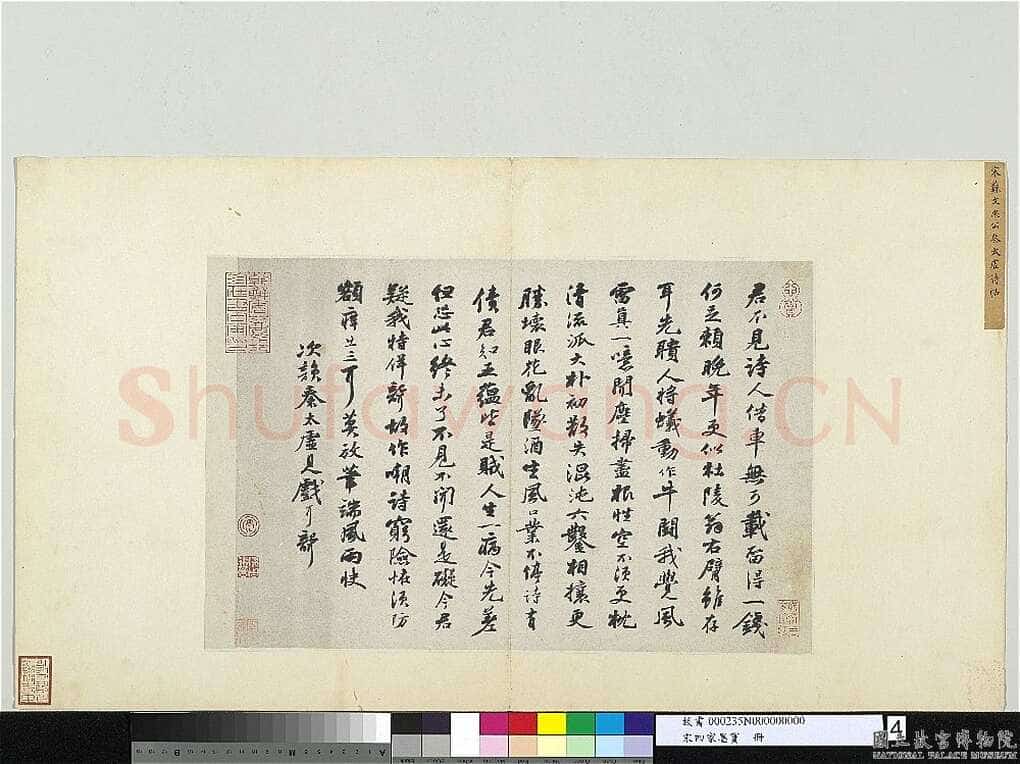 宋蘇文忠公太虛詩帖
君不見詩人借車無可載留得一錢
何足賴晚年更似杜陵翁右臂雖存
耳先聵人將蟻動作牛鬬我覺風
雷真一噫聞塵掃盡根性空不須更枕
清流派大朴初散失混沌六鑿相攘更
勝壞眼花亂墜酒生風口業不停詩有
債君知五蘊皆是賊人生一病今先差
但恐此心終未了不見不聞還是礙今君
疑我特佯聾故作嘲詩窮險怪須防
額痒出三耳莫放筆端風雨快
次韻秦太虛見戲耳聾
Shufawang.CN
故書 000235N000000000
宋四家墨寶 冊
4
國立故宮博物院
NATIONAL PALACE MUSEUM